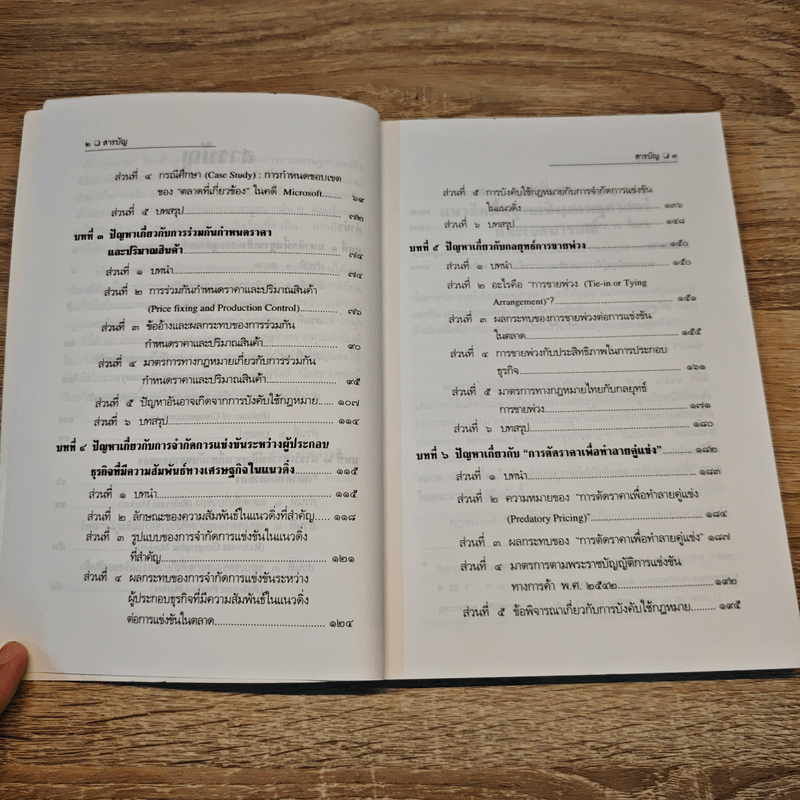 ๒ ❑ สารบัญ
ส่วนที่ ๔ กรณีศึกษา (Case Study) : การกำหนดขอบเขต
ของ "ตลาดที่เกี่ยวข้อง" ในคดี Microsoft....... ๖๙
ส่วนที่ ๕ บทสรุป.......................................................... ๗๒
บทที่ ๓ ปัญหาเกี่ยวกับการร่วมกันกำหนดราคา
และปริมาณสินค้า.......................................................... ๗๔
ส่วนที่ ๑ บทนำ.......................................................... ๗๔
ส่วนที่ ๒ การร่วมกันกำหนดราคาและปริมาณสินค้า
(Price fixing and Production Control)............ ๗๖
ส่วนที่ ๓ ข้ออ้างและผลกระทบของการร่วมกัน
กำหนดราคาและปริมาณสินค้า........................ ๙๐
ส่วนที่ ๔ มาตรการทางกฎหมายเกี่ยวกับการร่วมกัน
กำหนดราคาและปริมาณสินค้า........................ ๙๕
ส่วนที่ ๕ ปัญหาอันอาจเกิดจากการบังคับใช้กฎหมาย..... ๑๐๗
ส่วนที่ ๖ บทสรุป.......................................................... ๑๑๔
บทที่ ๔ ปัญหาเกี่ยวกับการจำกัดการแข่งขันระหว่างผู้ประกอบ
ธุรกิจที่มีความสัมพันธ์ทางเศรษฐกิจในแนวดิ่ง............ ๑๑๕
ส่วนที่ ๑ บทนำ.......................................................... ๑๑๕
ส่วนที่ ๒ ลักษณะของความสัมพันธ์ในแนวดิ่งที่สำคัญ..... ๑๑๘
ส่วนที่ ๓ รูปแบบของการจำกัดการแข่งขันในแนวดิ่ง
ที่สำคัญ.......................................................... ๑๒๑
ส่วนที่ ๔ ผลกระทบของการจำกัดการแข่งขันระหว่าง
ผู้ประกอบธุรกิจที่มีความสัมพันธ์ในแนวดิ่ง
ต่อการแข่งขันในตลาด................................... ๑๒๔
สารบัญ ❑ ๓
ส่วนที่ ๕ การบังคับใช้กฎหมายกับการจำกัดการแข่งขัน
ในแนวดิ่ง.......................................................... ๑๓๖
ส่วนที่ ๖ บทสรุป.......................................................... ๑๔๘
บทที่ ๕ ปัญหาเกี่ยวกับกลยุทธ์การขายพ่วง........................ ๑๕๐
ส่วนที่ ๑ บทนำ.......................................................... ๑๕๐
ส่วนที่ ๒ อะไรคือ "การขายพ่วง (Tie-in or Tying
Arrangement)"?............................................. ๑๕๑
ส่วนที่ ๓ ผลกระทบของการขายพ่วงต่อการแข่งขัน
ในตลาด.......................................................... ๑๕๕
ส่วนที่ ๔ การขายพ่วงกับประสิทธิภาพในการประกอบ
ธุรกิจ.......................................................... ๑๖๑
ส่วนที่ ๕ มาตรการทางกฎหมายไทยกับกลยุทธ์
การขายพ่วง.................................................... ๑๗๑
ส่วนที่ ๖ บทสรุป.......................................................... ๑๘๐
บทที่ ๖ ปัญหาเกี่ยวกับ "การตัดราคาเพื่อทำลายคู่แข่ง"......... ๑๘๒
ส่วนที่ ๑ บทนำ.......................................................... ๑๘๓
ส่วนที่ ๒ ความหมายของ "การตัดราคาเพื่อทำลายคู่แข่ง
(Predatory Pricing)"....................................... ๑๘๔
ส่วนที่ ๓ ผลกระทบของ "การตัดราคาเพื่อทำลายคู่แข่ง" ๑๘๗
ส่วนที่ ๔ มาตรการตามพระราชบัญญัติการแข่งขัน
ทางการค้า พ.ศ. ๒๕๔๒................................. ๑๙๒
ส่วนที่ ๕ ข้อพิจารณาเกี่ยวกับการบังคับใช้กฎหมาย......... ๑๙๕